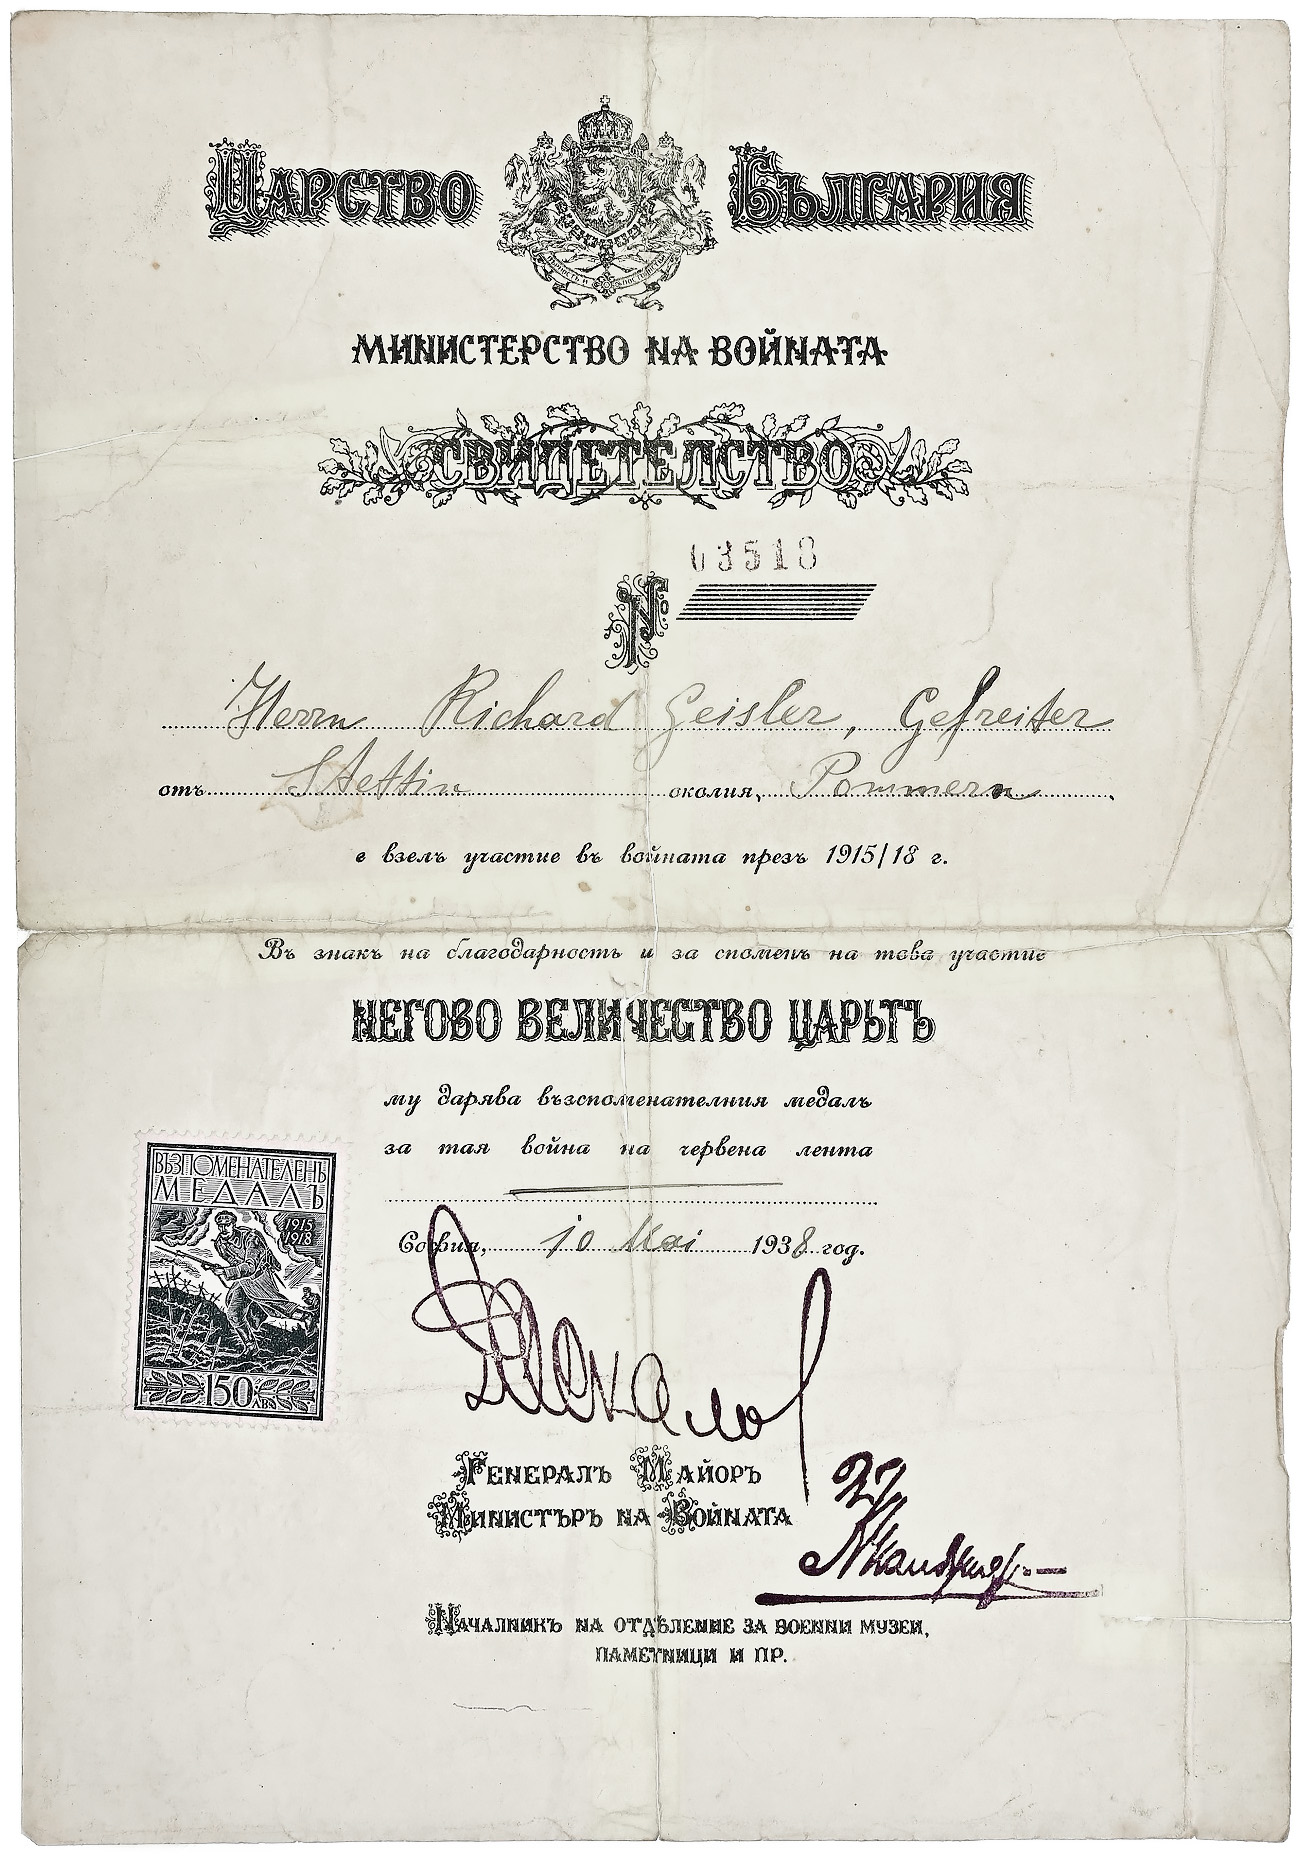 Царство България
МИНИСТЕРСТВО НА ВОЙНАТА
СВИДЕТЕЛСТВО
03518
№
Herrn Richard Geisler, Gefreiter
отъ Stettin околия, Pommern.
е взелъ участие въ войната презъ 1915/18 г.
Въ знакъ на благодарность и за споменъ на това участие
НЕГОВО ВЕЛИЧЕСТВО ЦАРЬТЪ
му дарява възспоменателния медалъ
за тая война на червена лента
ВЪЗПОМЕНАТЕЛЕНЪ
МЕДАЛЪ
1915
1918
150 ЛВ.
София, 10 Mai 1938 год.
Даскалов
Генералъ Майоръ
Министъръ на Войната
Началникъ на отдѣление за военни музеи,
паметници и пр.